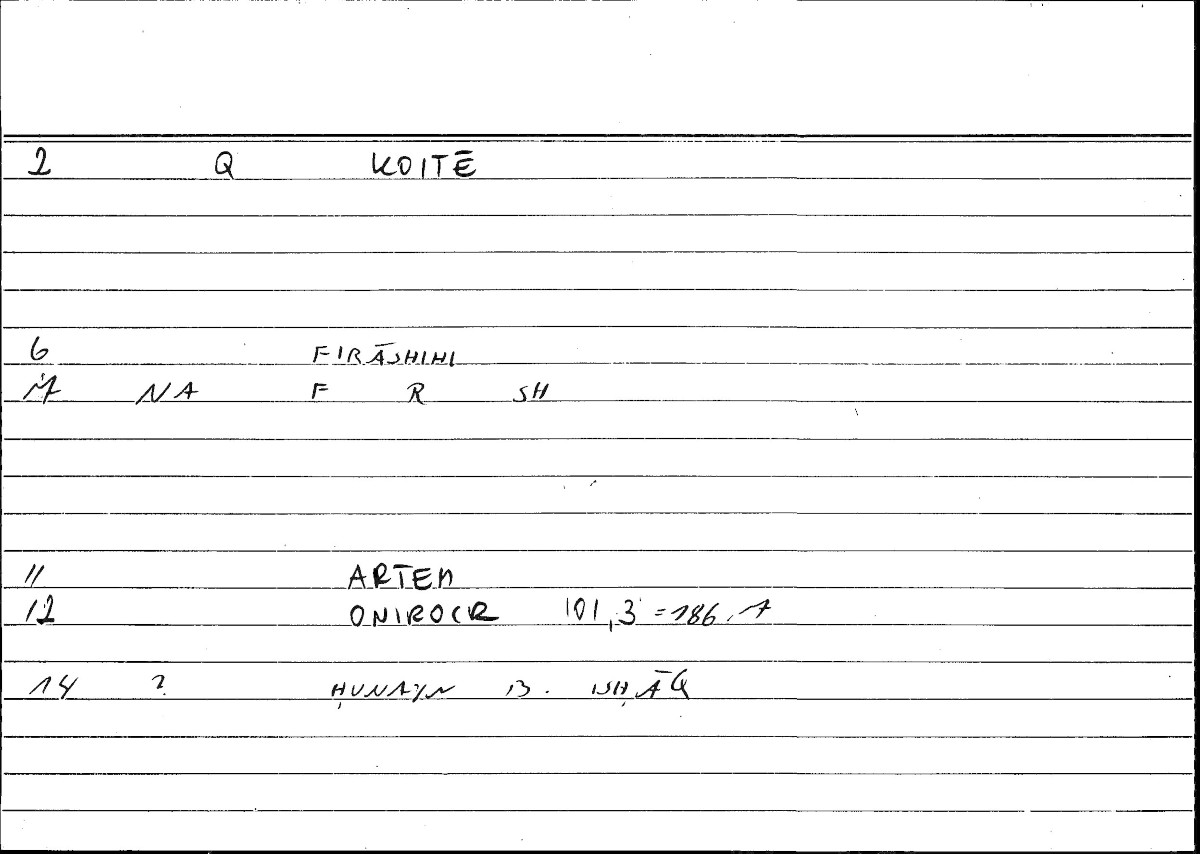 2 Q KOITĒ
6 FIRĀSHIHI
7 NA F R SH
11 ARTEM
12 ONIROCR 101,3 = 186,7
14 ? ḤUNAYN B. ISḤĀQ